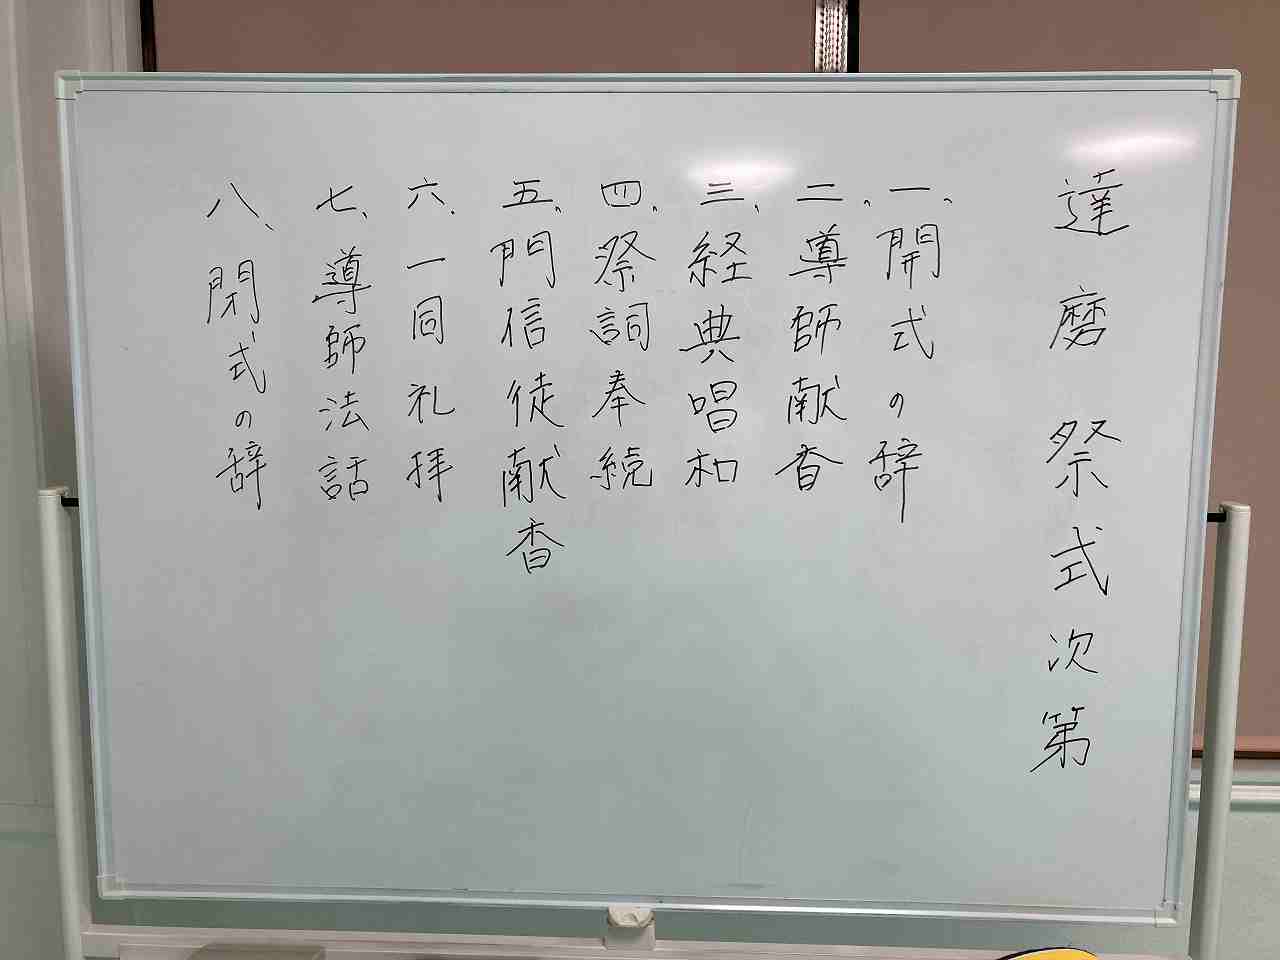 達磨祭式次第
一、開式の辞
二、導師献香
三、経典唱和
四、祭詞奉続
五、門信徒献香
六、一同礼拝
七、導師法話
八、閉式の辞